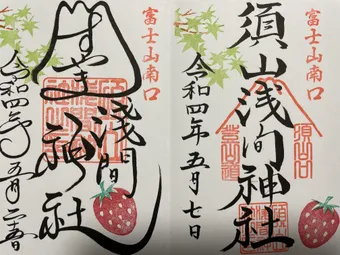 富士山南口
須山浅間神社
令和四年五月七日
須山口
登山道
富士山南口
すやま
浅間神社
令和四年五月